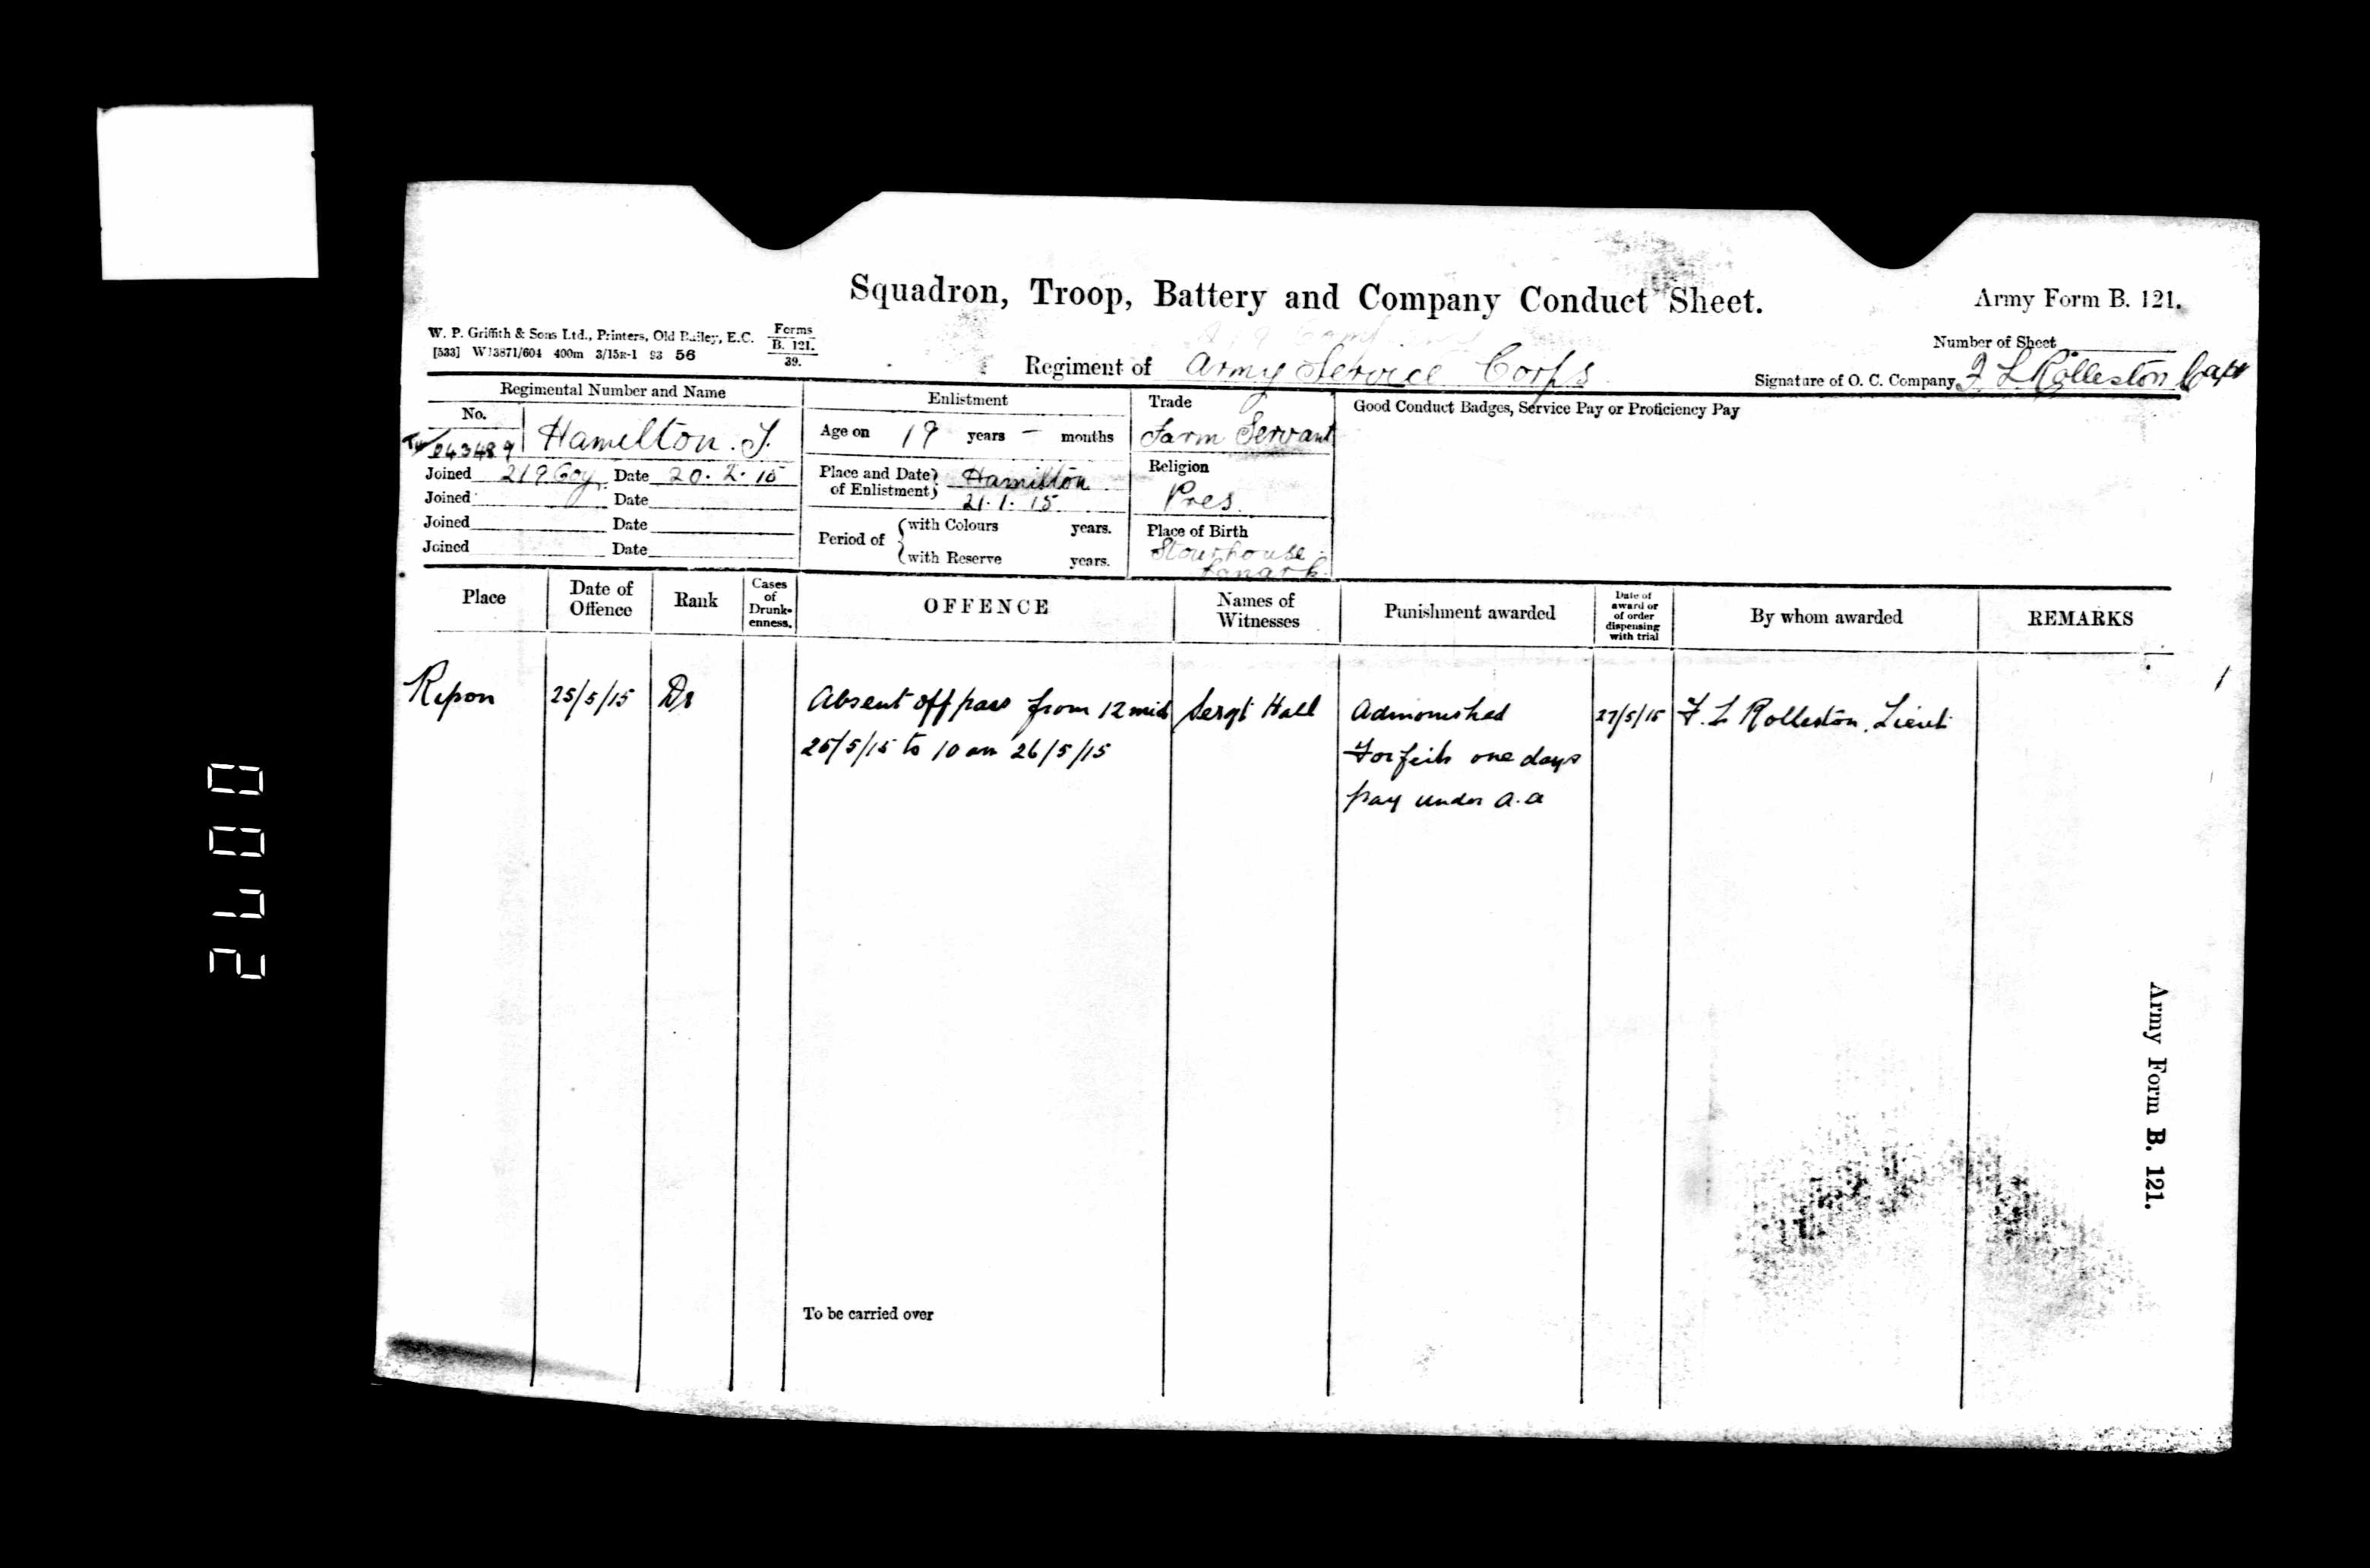 Squadron, Troop, Battery and Company Conduct Sheet.
Army Form B. 121.
W. P. Griffith & Sons Ltd., Printers, Old Bailey, E.C.
[533] W13871/604 400m 3/15R-1 93 56
Forms
B. 121.
39.
Number of Sheet
Regiment of Army Service Corps
Signature of O. C. Company F L Rolleston Capt
Regimental Number and Name
Enlistment
Trade
Good Conduct Badges, Service Pay or Proficiency Pay
No.
043489
Hamilton. J.
Age on 19 years — months
Farm Servant
Joined 219 Coy. Date 20. 2. 15
Place and Date of Enlistment Hamilton
21. 1. 15
Religion
Pres.
Joined Date
Joined Date
Joined Date
Period of with Colours years.
with Reserve years.
Place of Birth
Stonehouse
Lanark
Place
Date of Offence
Rank
Cases of Drunk-enness.
OFFENCE
Names of Witnesses
Punishment awarded
Date of award or of order dispensing with trial
By whom awarded
REMARKS
Ripon 25/5/15 Dr Absent off pass from 12 mid Sergt Hall Admonished 27/5/15 F. L Rolleston. Lieut
25/5/15 to 10 am 26/5/15 Forfeits one days
pay under a.a
To be carried over
Army Form B. 121.
2700